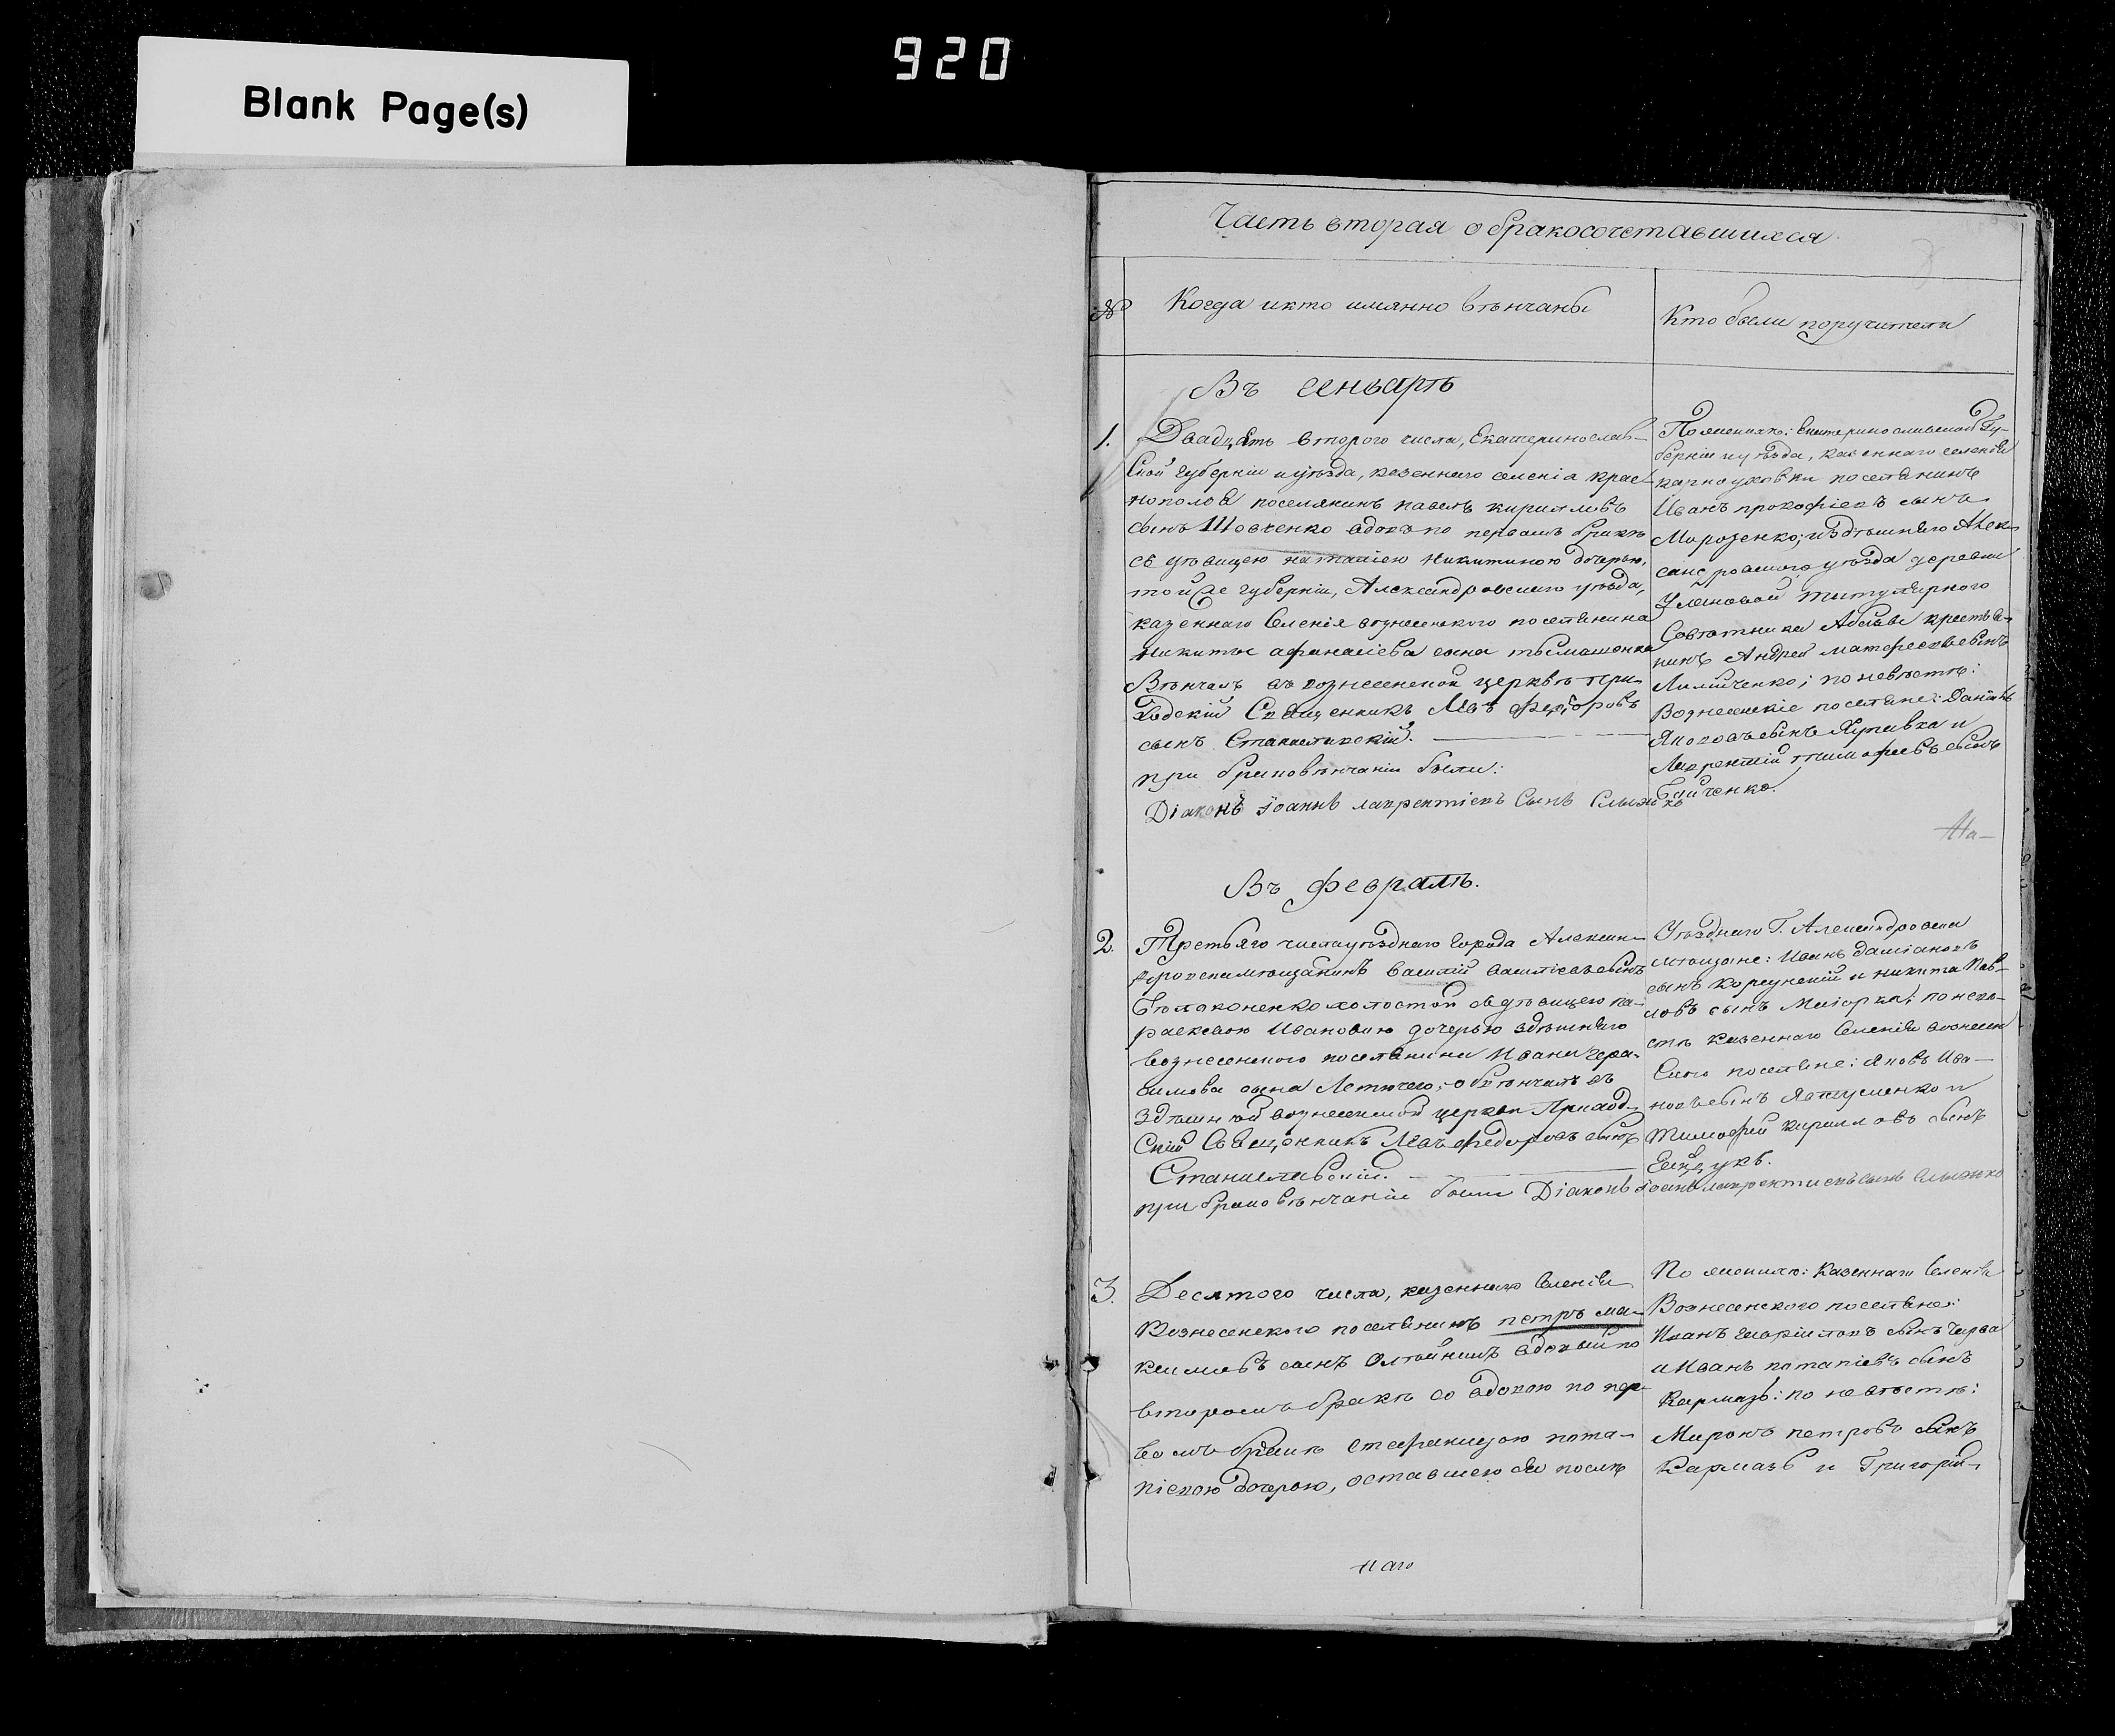 920
Blank Page(s)
Часть вторая о бракосочетавшихся
№
Когда и кто имянно вѣнчаны
Кто были поручители
Въ генварѣ
1.
Двадцять второго числа, Екатеринослав-
ской губерніи и уѣзда, казеннаго селенія крас-
нополья поселянинъ павелъ кирилловъ
сынъ Шовченко вдовъ по первомъ бракѣ
съ дѣвицею наталіею никитиною дочерью,
той же губерніи, Александровскаго уѣзда,
казеннаго селенія вознесенского поселянина
никиты афанасіева сына
Вѣнчалъ въ вознесенской церквѣ при-
ходскій Священникъ Левъ Федоровъ
сынъ Станиславскій.
при браковѣнчаніи были:
Діаконъ іоаннъ лаврентіевъ сынъ
По женихѣ: Екатеринославской Гу-
берніи и уѣзда, казеннаго селенія
поселянинъ
Иванъ прокофіевъ сынъ
Морозенко; и здѣшняго Алек-
сандровского уѣзда деревни
титулярного
Совѣтника крестья-
нинъ Андрей матфеевъ сынъ
по невѣстѣ:
Вознесенскіе поселяне: Даніилъ
Яковъ сынъ и
Лаврентій тимофеевъ сынъ
Бойченко.
На-
Въ февралѣ.
2.
Третьяго числа уѣзднаго города Алексан-
дровска мѣщанинъ василій васильевъ сынъ
холостой съ дѣвицею па-
раскевою Ивановою дочерью здѣшняго
вознесенского поселянина Ивана гера-
симова сына Летючего; обвѣнчалъ въ
здѣшней вознесенской церкви Приход-
скій Священникъ Левъ Федоровъ сынъ
Станиславскій.
при браковѣнчаніи были Діаконъ іоаннъ лаврентіевъ сынъ
Уѣзднаго Г. Александровска
мѣщане: Иванъ даміановъ
сынъ и никита пав-
ловъ сынъ по невѣ-
стѣ казеннаго селенія вознесен
ского поселяне: Яковъ Ива-
новъ сынъ и
Тимофей кирилловъ сынъ
3.
Десятого числа, казеннаго селенія
Вознесенского поселянинъ петръ ма-
ксимовъ сынъ Олѣйникъ вдовый по
второмъ бракѣ со вдовою по пер-
вомъ бракѣ стефанидою пота-
піевою дочерью, оставшеюся послѣ
По женихѣ: Казеннаго селенія
Вознесенского поселяне:
Иванъ сынъ
и Иванъ потапіевъ сынъ
Кармазь: по невѣстѣ:
Миронъ петровъ сынъ
Кармазь и Григорій
наго